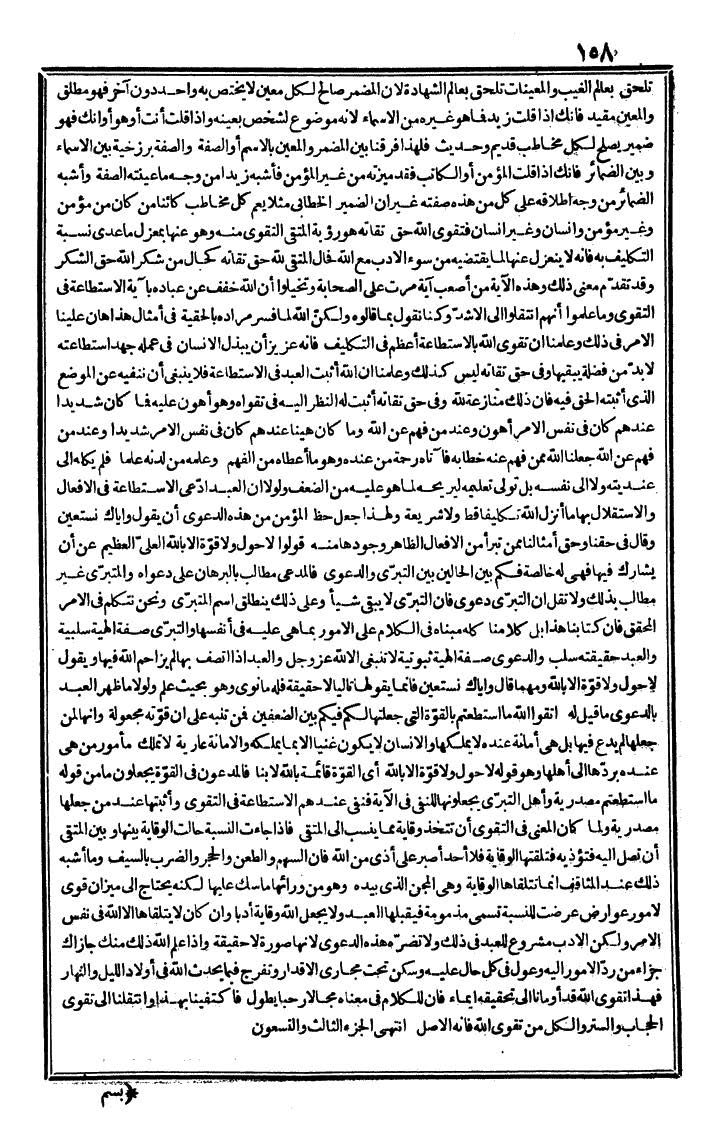 ١٥٨
تلحق بعالم الغيب والمعينات تلحق بعالم الشهادة لان المضمر صالح لكل معين لا يختص به واحد دون آخر فهو مطلق
والمعين مقيد فانك اذا قلت زيد فما هو غيره من الاسماء لانه موضوع لشخص بعينه واذا قلت أنت أو هو أو انك فهو
ضمير يصلح لكل مخاطب قديم وحديث فلهذا فرقنا بين المضمر والمعين بالاسم أو الصفة والصفة برزخية بين الاسماء
وبين الضمائر فانك اذا قلت المؤمن أو الكاتب فقد ميزته من غير المؤمن فأشبه زيدا من وجه ما عينته الصفة وأشبه
الضمائر من وجه اطلاقه على كل من هذه صفته غير ان الضمير الخطابى مثلا يعم كل مخاطب كائنا من كان من مؤمن
وغير مؤمن وانسان وغير انسان فتقوى الله حق تقاته هو رؤية المتقى التقوى منه وهو عنها بمعزل ما عدى نسبة
التكليف به فانه لا ينعزل عنها لما يقتضيه من سوء الادب مع الله فحال المتقى لله حق تقاته كحال من شكر الله حق الشكر
وقد تقدّم معنى ذلك وهذه الآية من أصعب آية مرت على الصحابة وتخيلوا أن الله خفف عن عباده بآية الاستطاعة فى
التقوى وما علموا أنهم انتقلوا الى الاشدّ وكنا نقول بما قالوه ولكنّ الله لما فسر مراده بالحقية فى أمثال هذا هان علينا
الامر فى ذلك وعلمنا ان تقوى الله بالاستطاعة أعظم فى التكليف فانه عزيز أن يبذل الانسان فى عمله جهد استطاعته
لابدّ من فضلة يبقيها وفى حق تقاته ليس كذلك وعلمنا ان الله أثبت العبد فى الاستطاعة فلا ينبغى أن ننفيه عن الموضع
الذى أثبته الحق فيه فان ذلك منازعة لله وفى حق تقاته أثبت له النظر اليه فى تقواه وهو أهون عليه فما كان شديدا
عندهم كان فى نفس الامر أهون وعند من فهم عن الله وما كان هينا عندهم كان فى نفس الامر شديدا وعند من
فهم عن الله جعلنا الله ممن فهم عنه خطابه فآتاه رحمة من عنده وهو ما أعطاه من الفهم وعلمه من لدنه علما فلم يكله الى
عنديته ولا الى نفسه بل تولى تعليمه ليريحه لما هو عليه من الضعف ولولا ان العبد ادّعى الاستطاعة فى الافعال
والاستقلال بها ما أنزل الله تكليفا قط ولا شريعة ولهذا جعل حظ المؤمن من هذه الدعوى أن يقول واياك نستعين
وقال فى حقنا وحق أمثالنا ممن تبرأ من الافعال الظاهر وجودها منه قولوا لا حول ولا قوّة الا بالله العلىّ العظيم عن أن
يشارك فيها فهى له خالصة فكم بين الحالين بين التبرّى والدعوى فالمدعى مطالب بالبرهان على دعواه والمتبرّى غير
مطالب بذلك ولا تقل ان التبرّى دعوى فان التبرّى لا يبقى شيأ وعلى ذلك ينطلق اسم المتبرّى ونحن نتكلم فى الامر
المحقق فان كتابنا هذا بل كلامنا كله مبناه فى الكلام على الامور بما هى عليه فى أنفسها والتبرّى صفة الهية سلبية
والعبد حقيقته سلب والدعوى صفة الهية ثبوتية لا تنبغى الا لله عز وجل والعبد اذا اتصف بها لم يزاحم الله فيها ويقول
لا حول ولا قوّة الا بالله ومهما قال واياك نستعين فانما يقولها تاليا لا حقيقة فله ما نوى وهو بحيث علم ولولا ما ظهر العبد
بالدعوى ما قيل له اتقوا الله ما استطعتم بالقوّة التى جعلتها لكم فيكم بين الضعفين فمن تنبه على ان قوّته مجعولة وانها لمن
جعلها لم يدع فيها بل هى أمانة عنده لا يملكها والانسان لا يكون غنيا الا بما يملكه والامانة عارية لا تملك مأمور من هى
عنده بردّها الى أهلها وهو قوله لا حول ولا قوّة الا بالله أى القوّة قائمة بالله لا بنا فالمدعون فى القوّة يجعلون ما من قوله
ما استطعتم مصدرية وأهل التبرّى يجعلونها للنفى فى الآية فنفى عندهم الاستطاعة فى التقوى وأثبتها عند من جعلها
مصدرية ولما كان المعنى فى التقوى أن تتخذ وقاية مما ينسب الى المتقى فاذا جاءت النسبة حالت الوقاية بينها وبين المتقى
أن تصل اليه فتؤذيه فتلقتها الوقاية فلا أحد أصبر على أذى من الله فان السهم والطعن والحجر والضرب بالسيف وما أشبه
ذلك عند المثاقف انما تتلقاها الوقاية وهى المجن الذى بيده وهو من ورائها ماسك عليها لكنه يحتاج الى ميزان قوى
لامور عوارض عرضت للنسبة تسمى مذمومة فيقبلها العبد ولا يجعل الله وقاية أدبا وان كان لا يتلقاها الا الله فى نفس
الامر ولكن الادب مشروع للعبد فى ذلك ولا تضرّه هذه الدعوى لانها صورة لا حقيقة واذا علم الله ذلك منك جازاك
جزاء من ردّ الامور اليه وعول فى كل حال عليه وسكن تحت مجارى الاقدار وتفرج فيما يحدث الله فى أولاد الليل والنهار
فهذا تقوى الله قد أومأنا الى تحقيقه ايماء فان للكلام فى معناه مجالا رحبا يطول فاكتفينا بهذا وانتقلنا الى تقوى
الحجاب والستر والكل من تقوى الله فانه الاصل انتهى الجزء الثالث والتسعون
﴿بسم